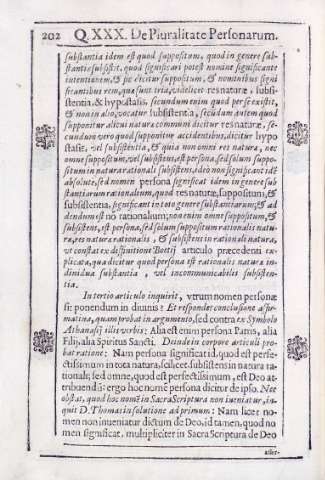 202 Q. XXX. De Pluralitate Personarum.
substantia idem est quod suppositum, quod in genere sub-
stantiæ subsistit, quod significari potest nomine significante
intentionem, & sic dicitur suppositum, & nominibus signi
ficantibus rem, quæ sunt tria, videlicet res naturæ, subsi-
stentia, & hypostasis, secundum enim quod per se existit,
& non in alio, vocatur subsistentia, secūdum autem quod
supponitur alicui naturæ communi dicitur res naturæ, se-
cundum vero quod supponitur accidentibus, dicitur hypo
stasis, vel subsistentia, & quia non omnis res natura, nec
omne suppositum, vel subsistens, est persona, sed solum suppo-
situm in natura rationali subsistens, ideo non significant idē
absolute, sed nomen persona significat idem in genere sub
stantiarum rationalium, quod res naturæ, suppositum, &
subsistentia, significant in toto genere substantiarum; & ad
dendum est no rationalium; non enim omne suppositum, &
subsistens, est persona, sed solum suppositum rationalis natu-
ræ, res natura rationalis, & subsistens in rationali natura,
vt constat ex diffinitione Boetij articulo præcedenti ex-
plicata, qua dicitur quod persona est rationalis naturæ in-
diuidua substantia, vel incommunicabilis subsisten-
tia.
In tertio articulo inquirit, vtrum nomen personæ
sit ponendum in diuinis? Et respondet conclusione affir-
matiua, quam probat in argumento, sed contra ex Symbolo
Athanasij illis verbis: Alia est enim persona Patris, alia
Filij, alia Spiritus Sancti. Deinde in corpore articuli pro-
bat ratione: Nam persona significat id, quod est perfe-
ctissimum in tota natura, scilicet subsistens in natura ra-
tionali; sed omne, quod est perfectissimum, est Deo at-
tribuendū: ergo hoc nomē persona dicitur de ipso. Nec
obstat, quod hoc nomē in Sacra Scriptura non inueniatur, in-
quit D. Thomas in solutione ad primum: Nam licet no-
men non inueniatur dictum de Deo, id tamen, quod no-
men significat, multipliciter in Sacra Scriptura de Deo